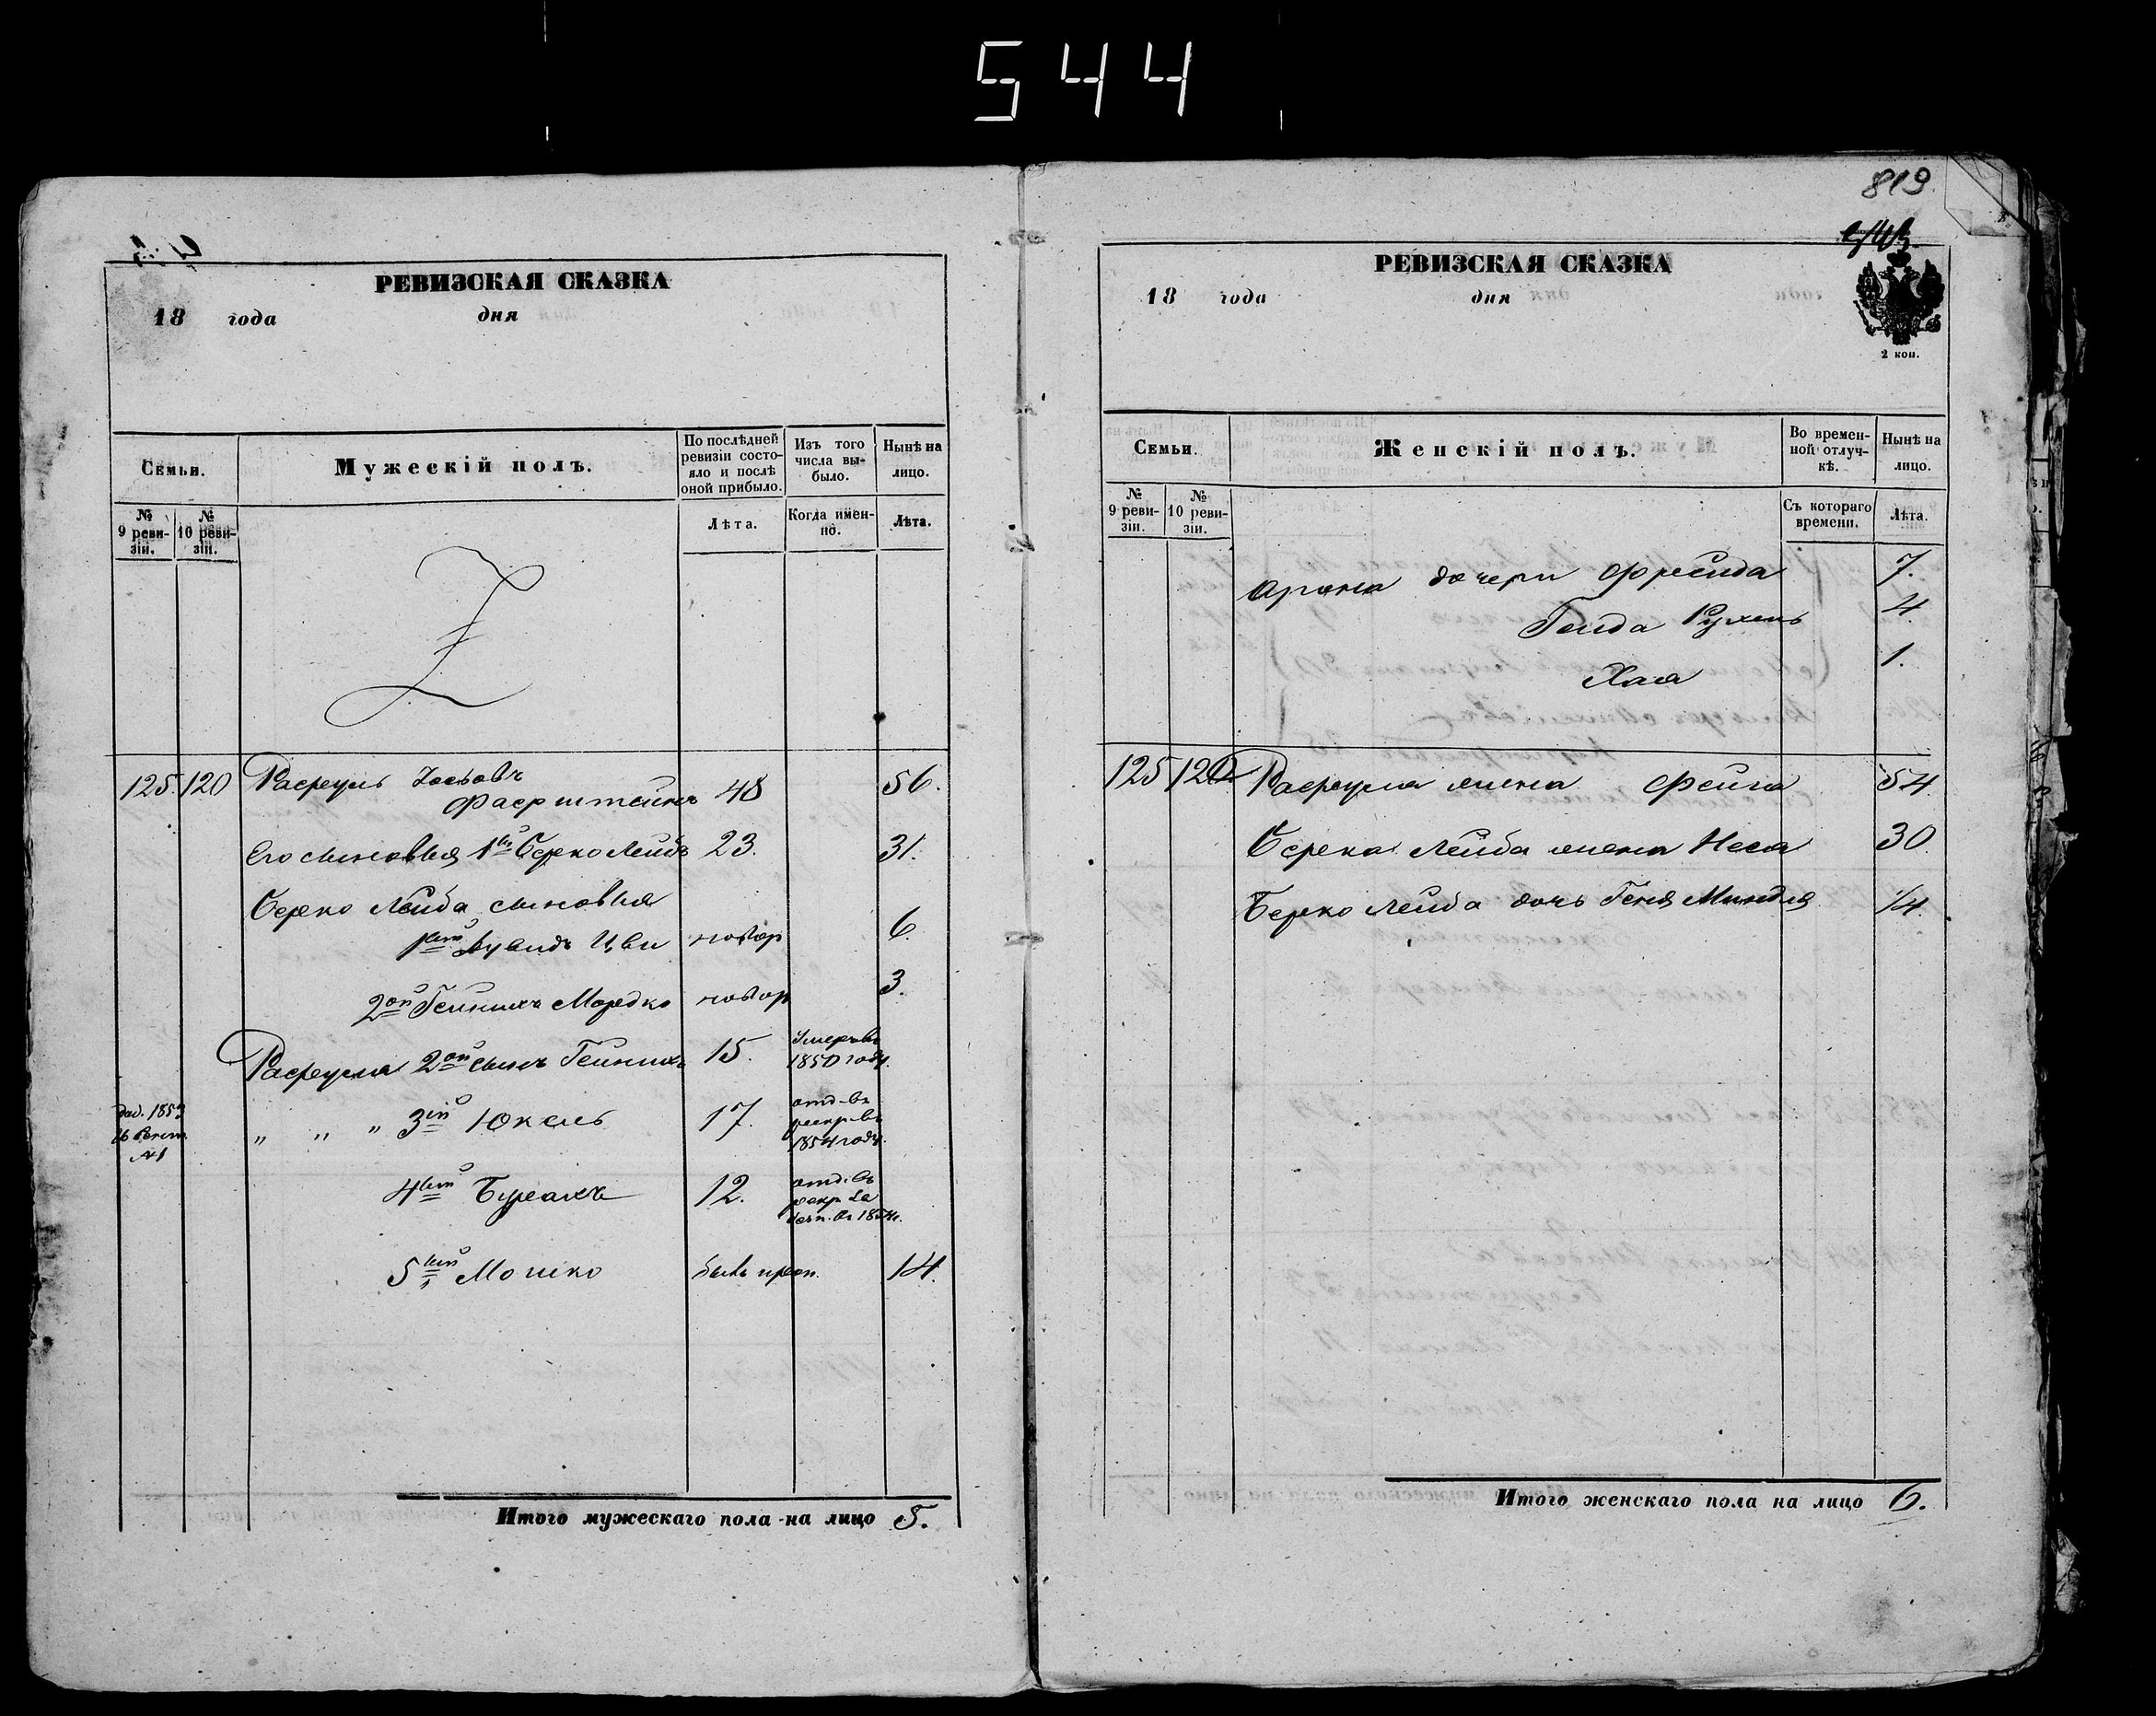 544
РЕВИЗСКАЯ СКАЗКА
18 года дня
Семьи.
Мужескій полъ.
По послѣдней ревизіи состояло и послѣ оной прибыло.
Изъ того числа выбыло.
Нынѣ на лицо.
№ 9 ревизіи.
№ 10 ревизіи.
Лѣта.
Когда именно.
Лѣта.
125. 120 Расфуль 48 56.
Его сыновья 1й Берко Лейбъ 23. 31.
Берко Лейба сыновья
1ый Цви новор 6.
2ой Гейнихъ Мордко новор 3.
Расфуля 2ой сынъ Гейнихъ 15. Умеръ въ 1850 году.
" " " 3ій Юкель 17. отд. въ рекр. въ 1854 году.
4ый 12. отд. въ рекр. 1854
5ый Мошко былъ проп. 14.
Итого мужескаго пола на лицо 5.
819
РЕВИЗСКАЯ СКАЗКА
18 года дня
2 коп.
Семьи.
Женскій полъ.
Во временной отлучкѣ.
Нынѣ на лицо.
№ 9 ревизіи.
№ 10 ревизіи.
Съ котораго времени.
Лѣта.
Арона дочери Фрейда 7.
Гейда Рухель 4.
Хая 1.
125 120 Расфуля жена Фейга 54.
Берка Лейба жена Неся 30.
Берко Лейба дочь Геня Миндля 14.
Итого женскаго пола на лицо 6.